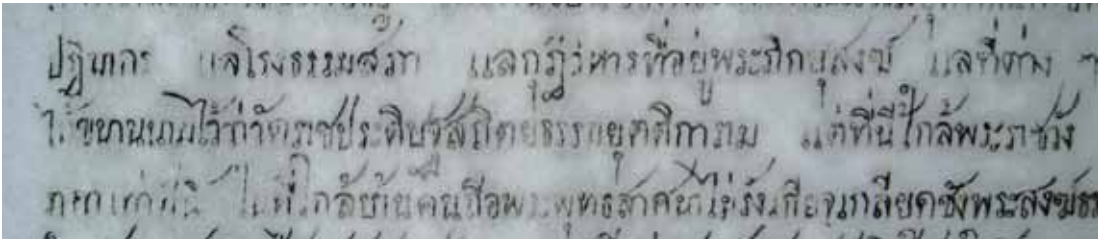 ปฏิมากร แลโรงธรรมสภา แลกุฎีวิหารที่อยู่พระภิกษุสงฆ์ แลที่ต่าง ๆ
ให้ขนานนามไว้ว่าวัดราชประดิษฐ์สถิตย์ธรรมยุตติการาม แต่ที่นี้ใกล้พระราชวัง
ใกล้บ้านคนถือพระพุทธสาศนาไม่รังเกียจเกลียดชังพระสงฆ์